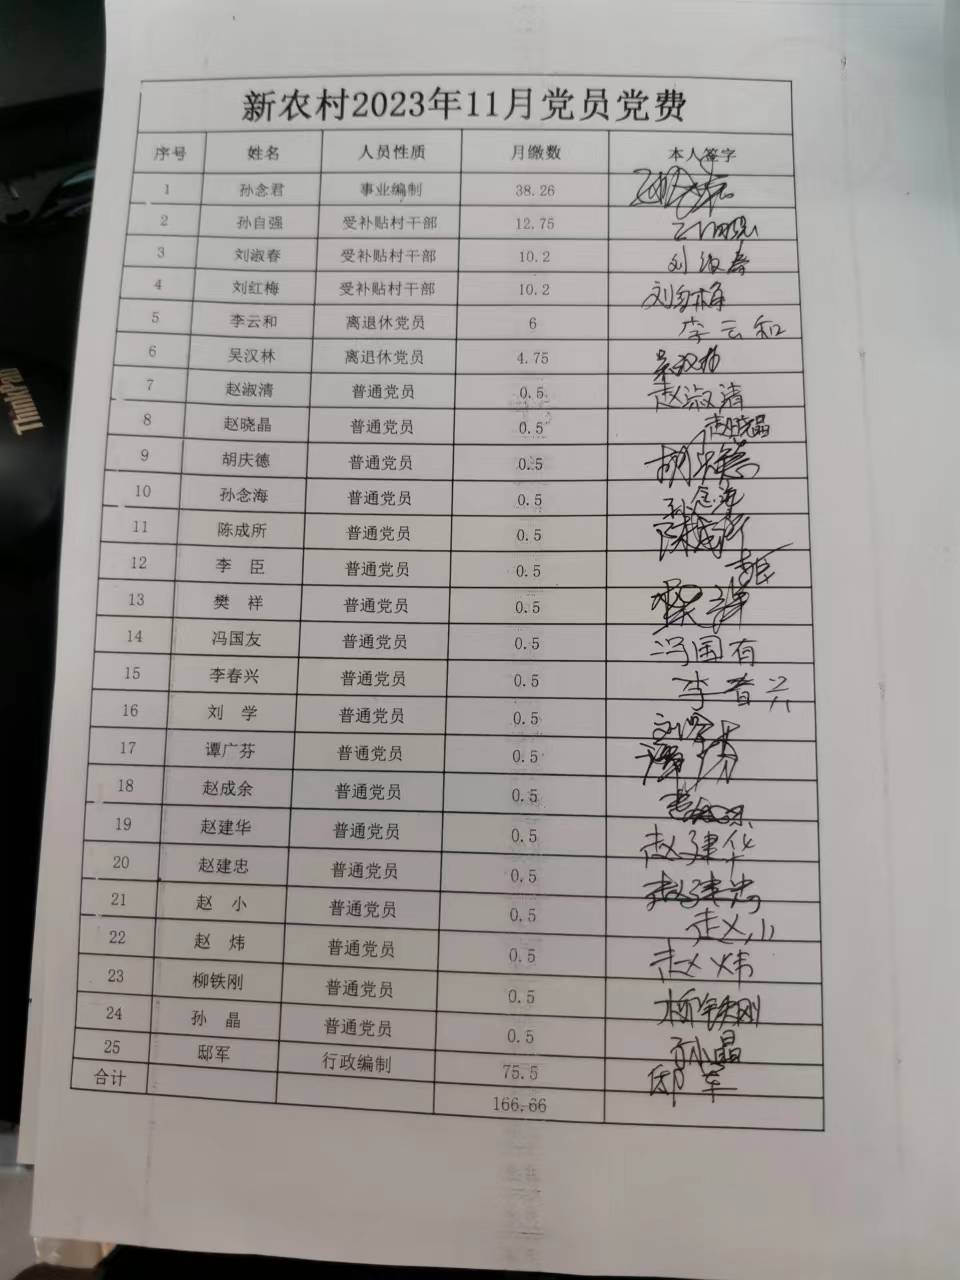 新农村2023年11月党员党费
序号 姓名 人员性质 月缴数 本人签字
1 孙念君 事业编制 38.26
2 孙自强 受补贴村干部 12.75
3 刘淑春 受补贴村干部 10.2 刘淑春
4 刘红梅 受补贴村干部 10.2 刘红梅
5 李云和 离退休党员 6 李云和
6 吴汉林 离退休党员 4.75 吴汉林
7 赵淑清 普通党员 0.5 赵淑清
8 赵晓晶 普通党员 0.5 赵晓晶
9 胡庆德 普通党员 0.5 胡庆德
10 孙念海 普通党员 0.5 孙念海
11 陈成所 普通党员 0.5 陈成所
12 李 臣 普通党员 0.5 李臣
13 樊 祥 普通党员 0.5 樊祥
14 冯国友 普通党员 0.5 冯国有
15 李春兴 普通党员 0.5 李春兴
16 刘 学 普通党员 0.5 刘学
17 谭广芬 普通党员 0.5
18 赵成余 普通党员 0.5
19 赵建华 普通党员 0.5 赵建华
20 赵建忠 普通党员 0.5 赵建忠
21 赵 小 普通党员 0.5 赵小
22 赵 炜 普通党员 0.5 赵炜
23 柳铁刚 普通党员 0.5 柳铁刚
24 孙 晶 普通党员 0.5 孙晶
25 邸军 行政编制 75.5 邸军
合计 166.66
ThinkPad